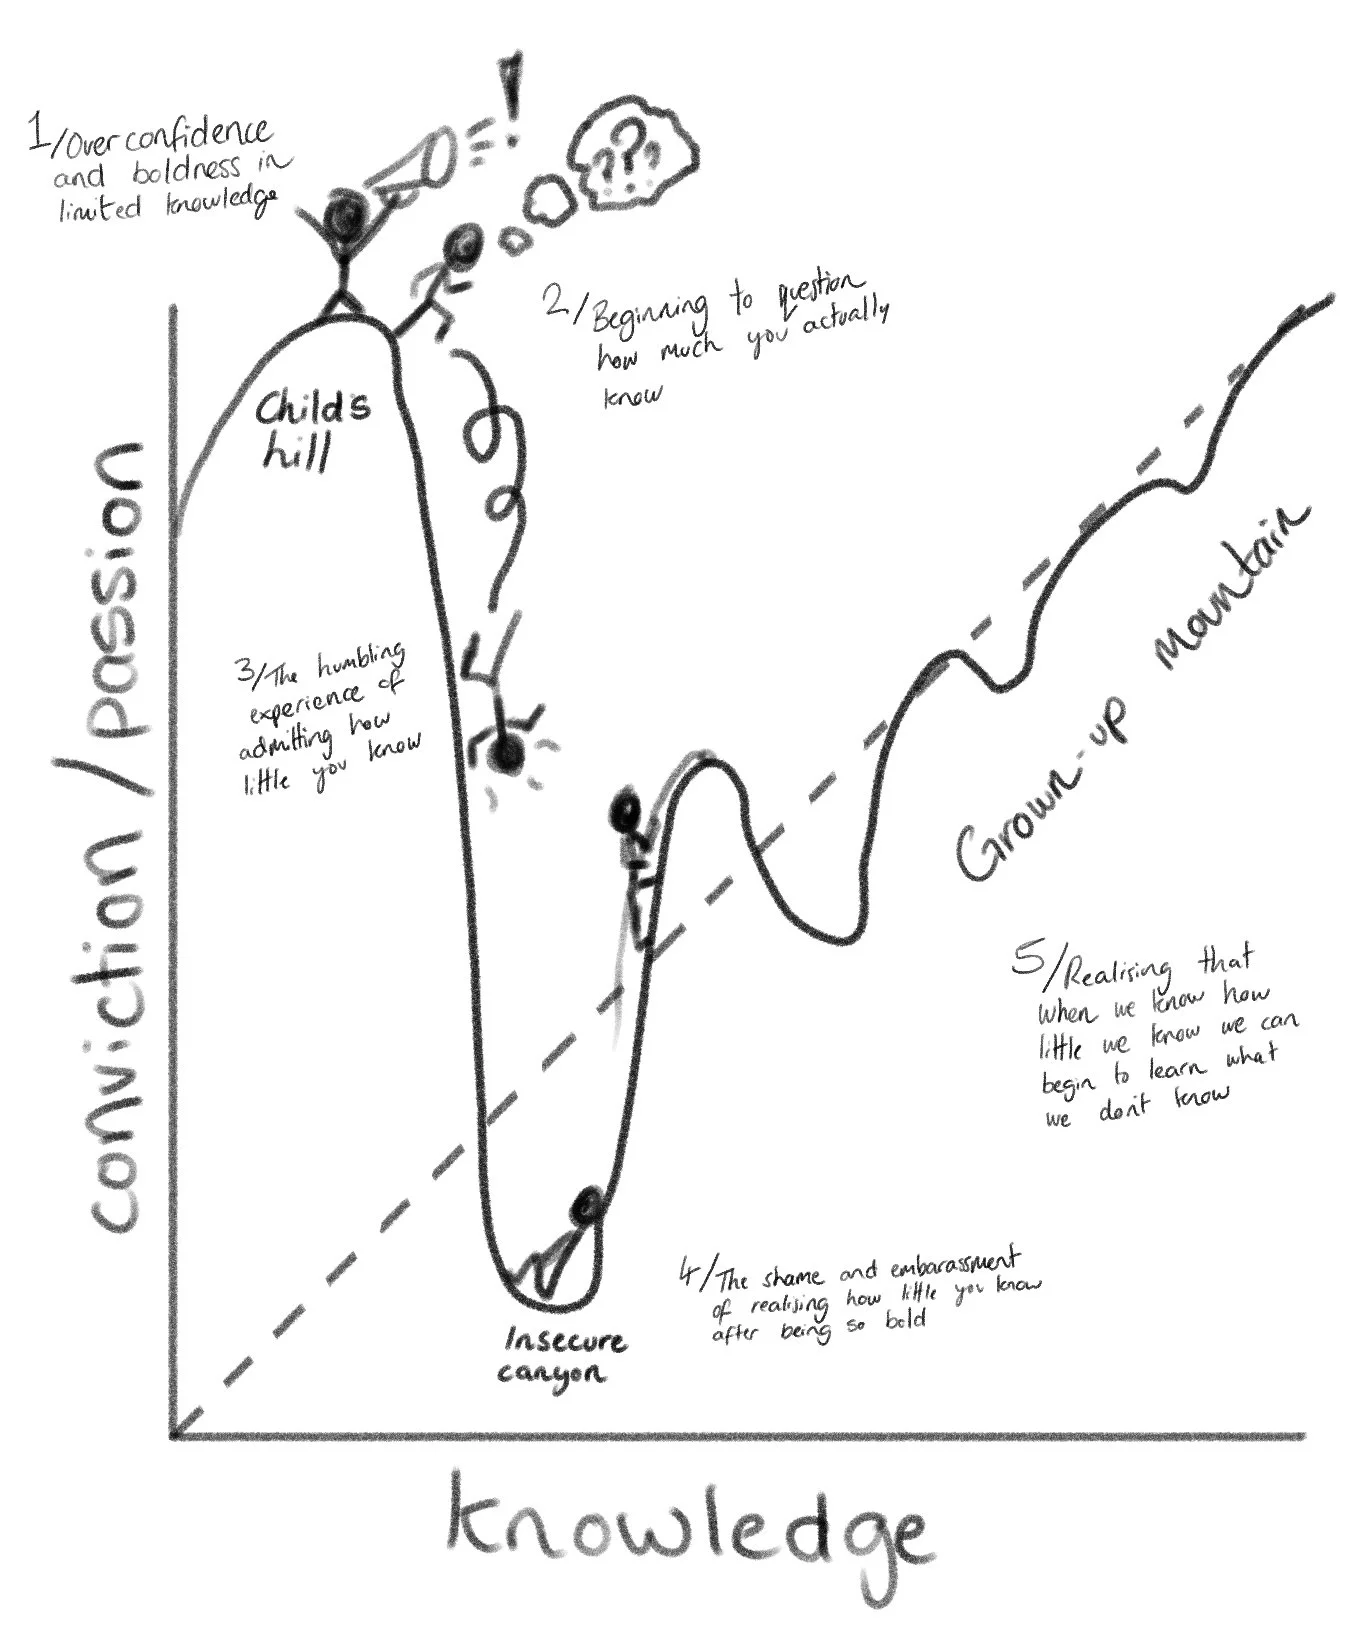 !
1/Over confidence
and boldness in
limited knowledge
???
2/Beginning to question
how much you actually
know
Child's
hill
conviction / passion
3/The humbling
experience of
admitting how
little you know
Grown-up Mountain
5/Realising that
when we know how
little we know we can
begin to learn what
we don't know
4/The shame and embarassment
of realising how little you know
after being so bold
Insecure
canyon
knowledge